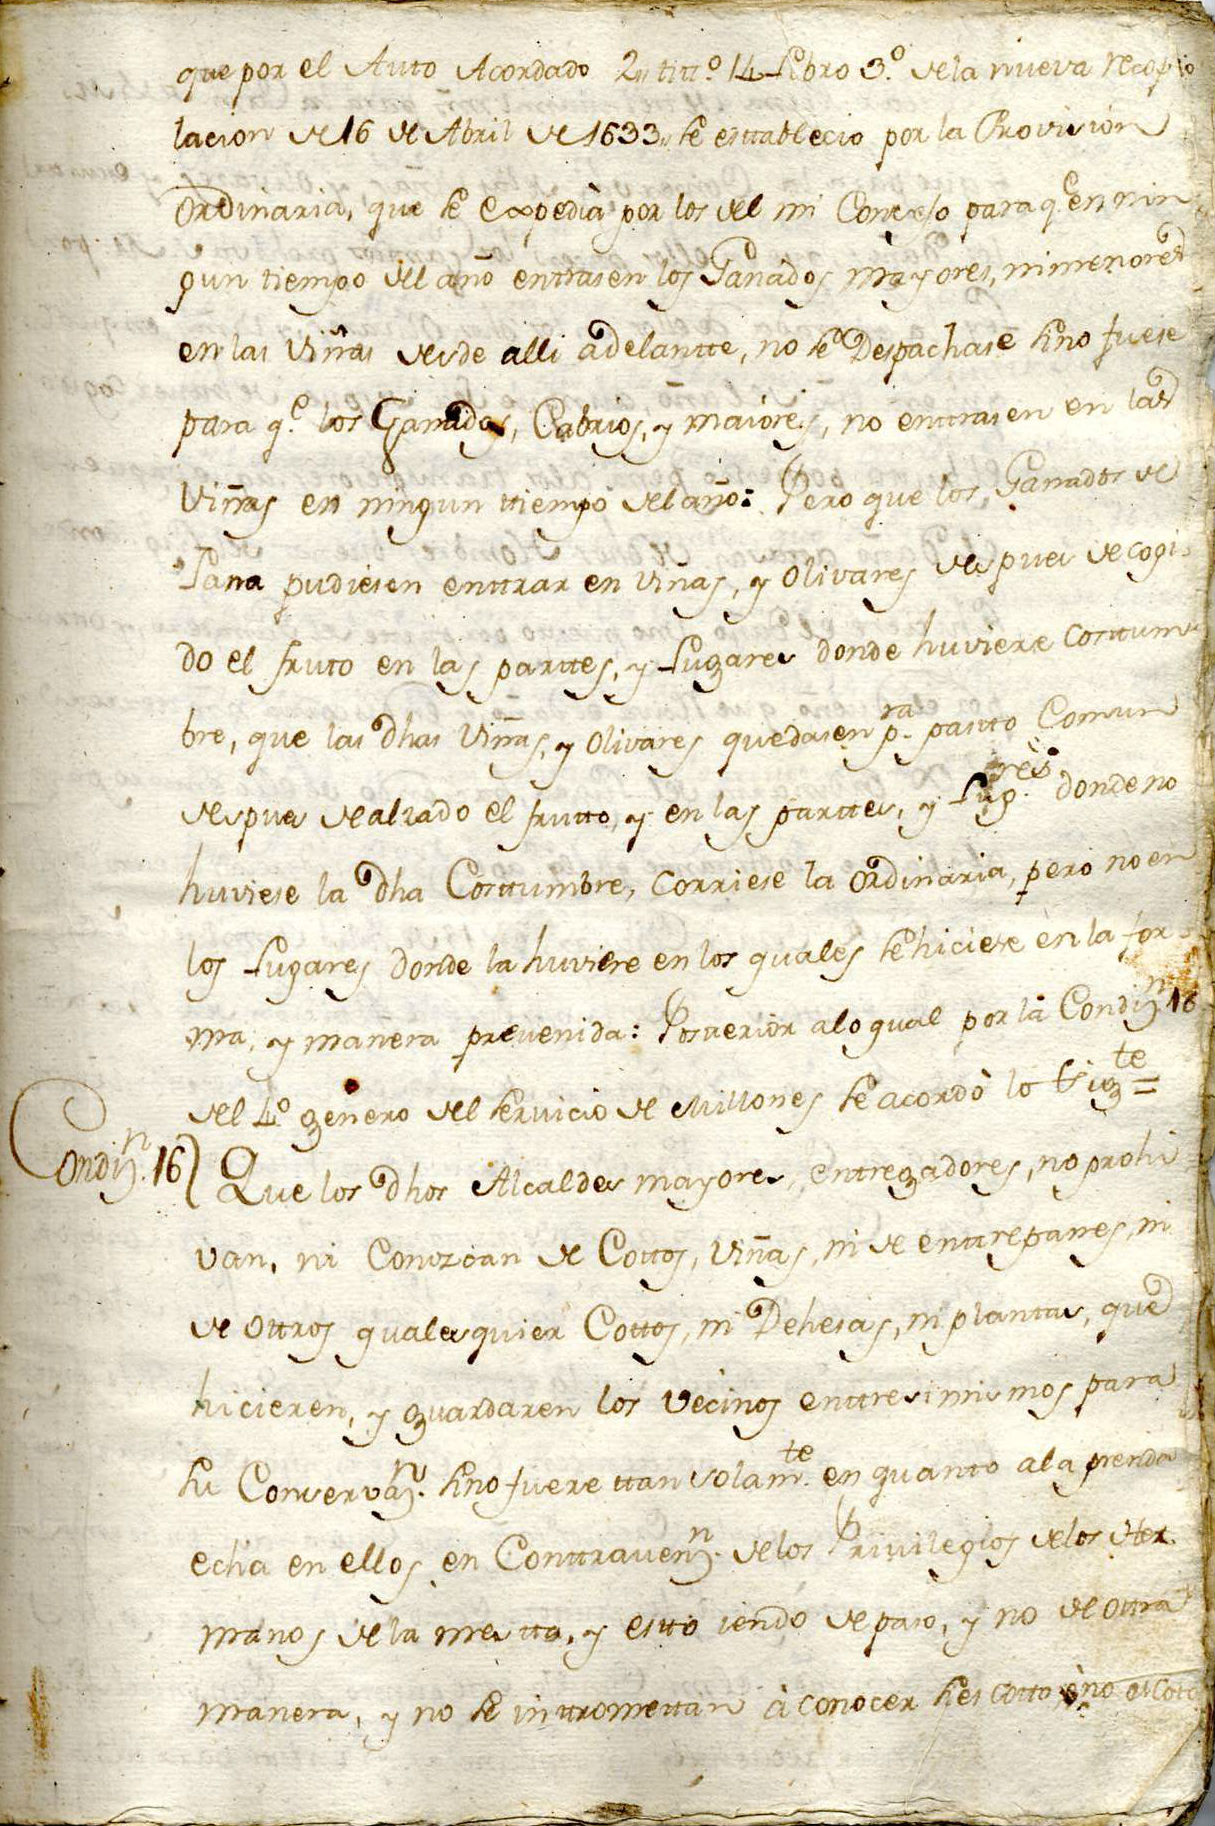 que por el Auto Acordado 2,, titt.º 14 Libro 3.º de la nueva recopi
lacion de 16 de Abril de 1633,, se esttablecio por la Provision
Ordinaria, que se expedia por los del mi Consejo para q.e en nin
gun tiempo del año enttrasen los Ganados mayores, ni menores
en las Viñas desde alli adelantte, no se Despachase sino fuese
para q.e los Ganados, Cabrios, y maiores, no enttrasen en las
Viñas en ningun ttiempo del año: Pero que los Ganados de
Lana pudiesen enttrar en Viñas, y Olivares despues de cogi
do el fruto en las parttes, y Lugares donde huviere Costtum
bre, que las dhas Viñas, y Olivares quedasen p.ra pastto Comun
despues de alzado el frutto, y en las parttes, y Lug.res donde no
huviese la dha Costtumbre, corriese la ordinaria, pero no en
los Lugares donde la huviere en los quales se hiciese en la for
ma, y manera prevenida: Posterior alo qual por la Condiz.n 16
del 4.º genero del servicio de Millones se acordò lo sig.te =
Condiz.n 16) Que los dhos Alcaldes mayores, entregadores, no prohi
van, ni Conozcan de Cottos, Viñas, ni de enttrepanes, ni
de ottros qualesquier Cottos, ni Dehesas, ni planttas, que
hicieren, y guardaren los Vecinos enttre si mismos para
su Conservaz.n sino fuere ttan solam.te en quanto ala prenda
echa en ellos en Conttravenz.n de los Privilegios de los Her
manos de la mestta, y estto iendo de paso, y no de ottra
manera, y no se inttromettan à conocer si es cotto ò no es Coto